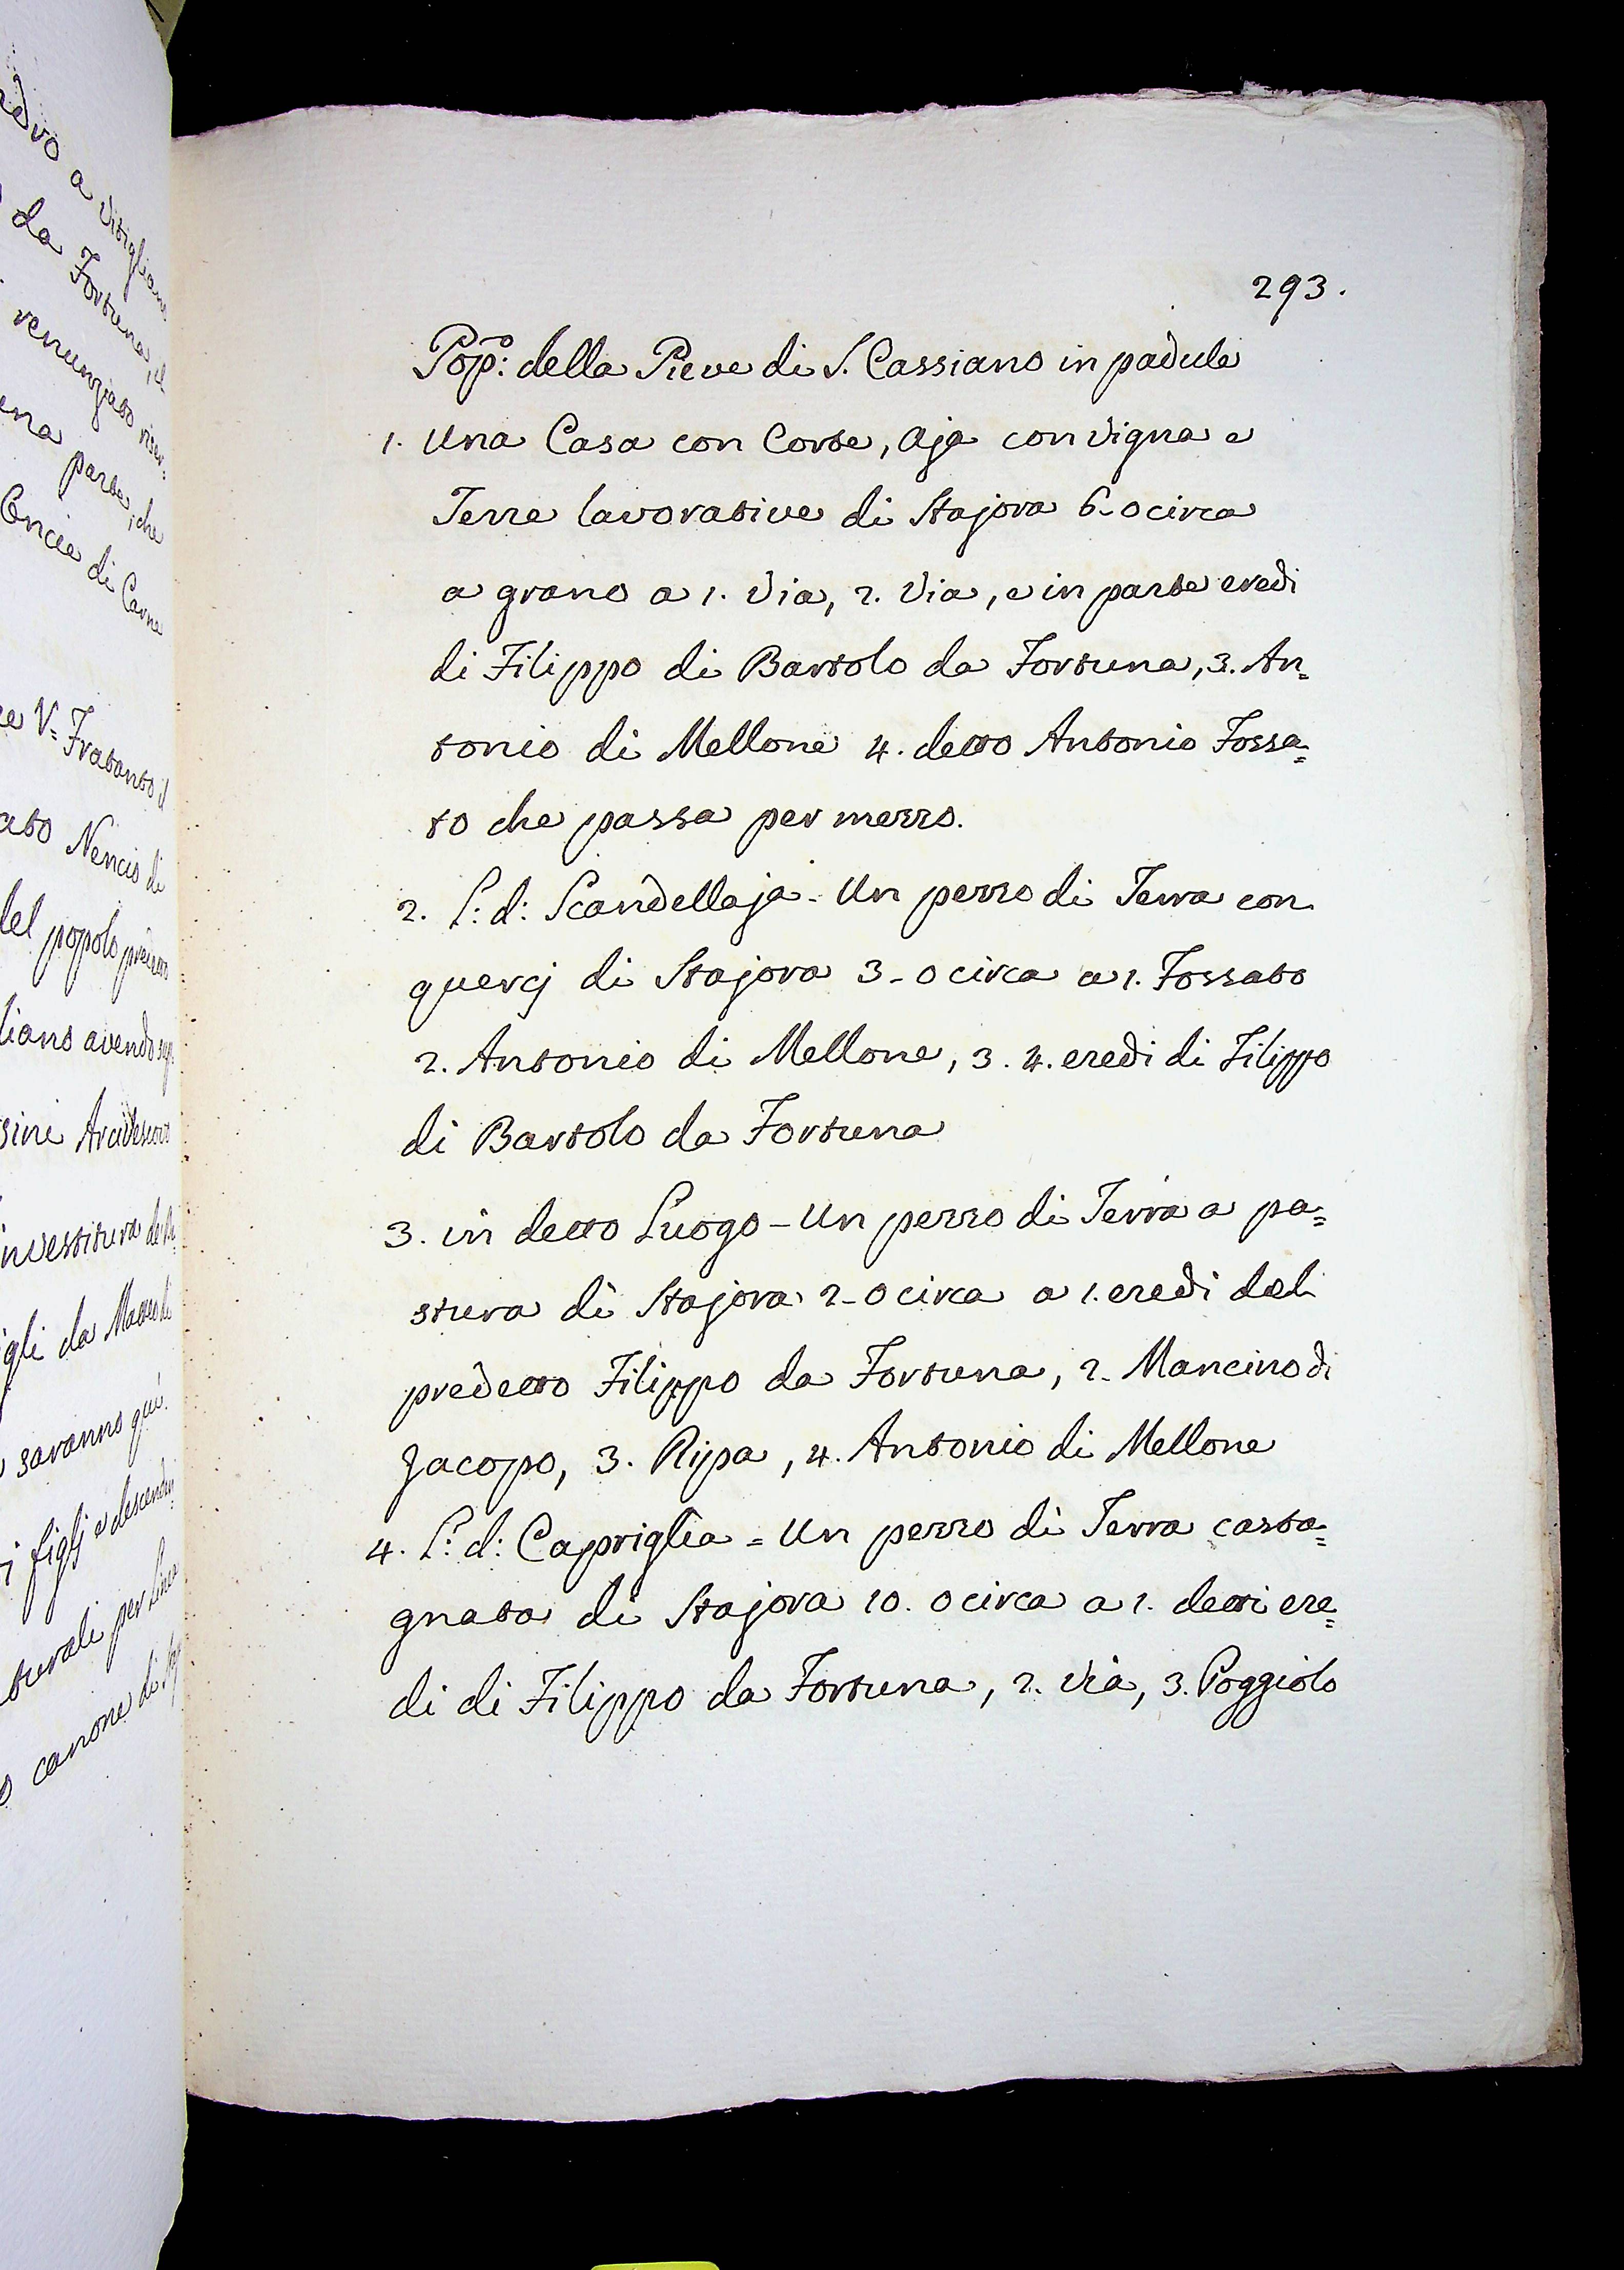 redvo a Visigliano
da Fortuna, il
renunziato riser:
una parte, che
Cencia di Carne
V= Fratanto il
ato Nencio di
del popolo predetto
liano avendo
sini Arcivescovo
investitura
igli da
saranno qui
figlj e descenden
turali per linea
canone di
293.
Pop:o della Pieve di S. Cassiano in padule
1. Una Casa con Corte, Aja con vigna e
Terre lavorative di Stajora 6-0 circa
a grano a 1. Via, 2. Via, e in parte eredi
di Filippo di Bartolo da Fortuna, 3. An=
tonio di Mellone 4. detto Antonio Fossa=
to che passa per mezzo.
2. L: d: Scandellaja - Un pezzo di Terra con
quercj di Stajora 3-0 circa a 1. Fossato
2. Antonio di Mellone, 3. 4. eredi di Filippo
di Bartolo da Fortuna
3. in detto Luogo - Un pezzo di Terra a pa=
stura di Stajora 2-0 circa a 1. eredi del
predetto Filippo da Fortuna, 2. Mancino di
Jacopo, 3. Ripa, 4. Antonio di Mellone
4. L: d: Capriglia = Un pezzo di Terra casta=
gnata di Stajora 10. 0 circa a 1. detti ere=
di di Filippo da Fortuna, 2. Via, 3. Poggiolo